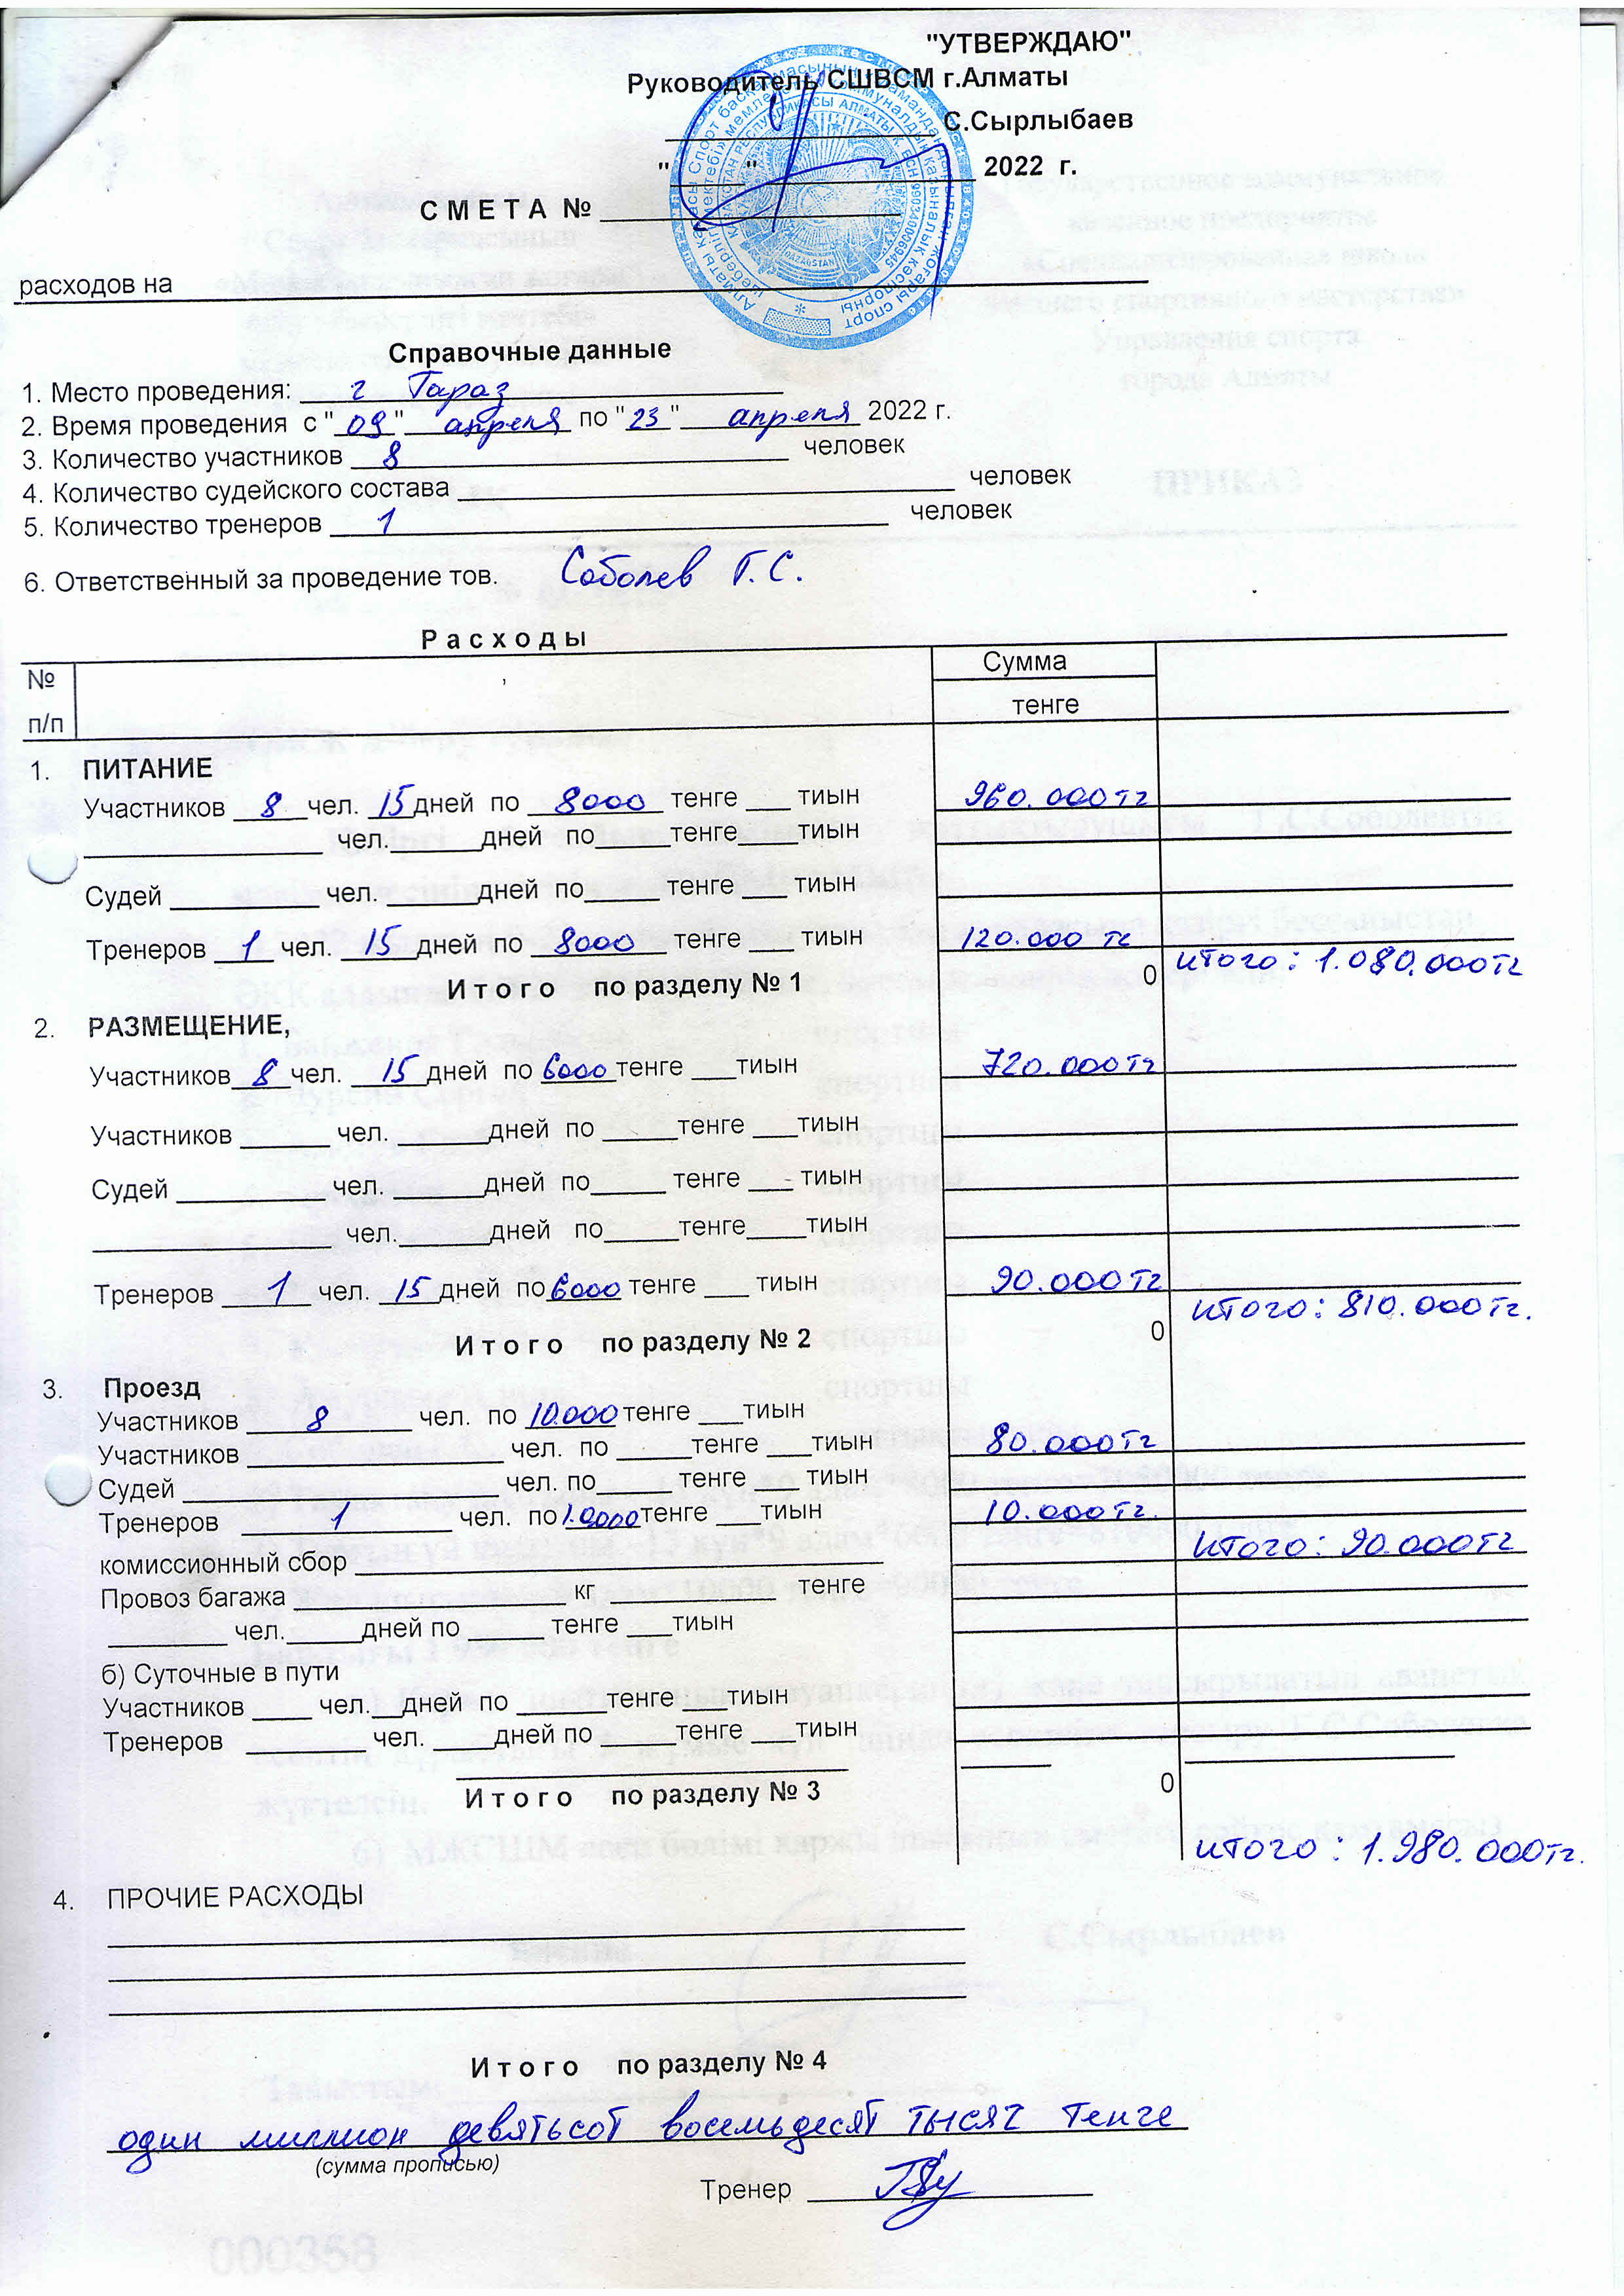 "УТВЕРЖДАЮ"
Руководитель СШВСМ г.Алматы
С.Сырлыбаев
" " 2022 г.
С М Е Т А № 
расходов на
Справочные данные
1. Место проведения: г Тараз
2. Время проведения с "09" апреля по "23" апреля 2022 г.
3. Количество участников 8 человек
4. Количество судейского состава человек
5. Количество тренеров 1 человек
6. Ответственный за проведение тов. Соболев Г.С.
Р а с х о д ы
№ п/п Сумма
тенге
1. ПИТАНИЕ
Участников 8 чел. 15 дней по 8000 тенге тиын 960.000тг
чел. дней по тенге тиын
Судей чел. дней по тенге тиын
Тренеров 1 чел. 15 дней по 8000 тенге тиын 120.000 тг
И т о г о по разделу № 1 0 итого: 1.080.000тг
2. РАЗМЕЩЕНИЕ,
Участников 8 чел. 15 дней по 6000 тенге тиын 720.000тг
Участников чел. дней по тенге тиын
Судей чел. дней по тенге тиын
чел. дней по тенге тиын
Тренеров 1 чел. 15 дней по 6000 тенге тиын 90.000тг
итого: 810.000тг.
И т о г о по разделу № 2 0
3. Проезд
Участников 8 чел. по 10.000 тенге тиын 80.000тг
Участников чел. по тенге тиын
Судей чел. по тенге тиын
Тренеров 1 чел. по 10000 тенге тиын 10.000тг.
комиссионный сбор итого: 90.000тг
Провоз багажа кг тенге
чел. дней по тенге тиын
б) Суточные в пути
Участников чел. дней по тенге тиын
Тренеров чел. дней по тенге тиын
И т о г о по разделу № 3 0
итого: 1.980.000тг.
4. ПРОЧИЕ РАСХОДЫ
И т о г о по разделу № 4
один миллион девятьсот восемьдесят тысяч тенге
(сумма прописью)
Тренер